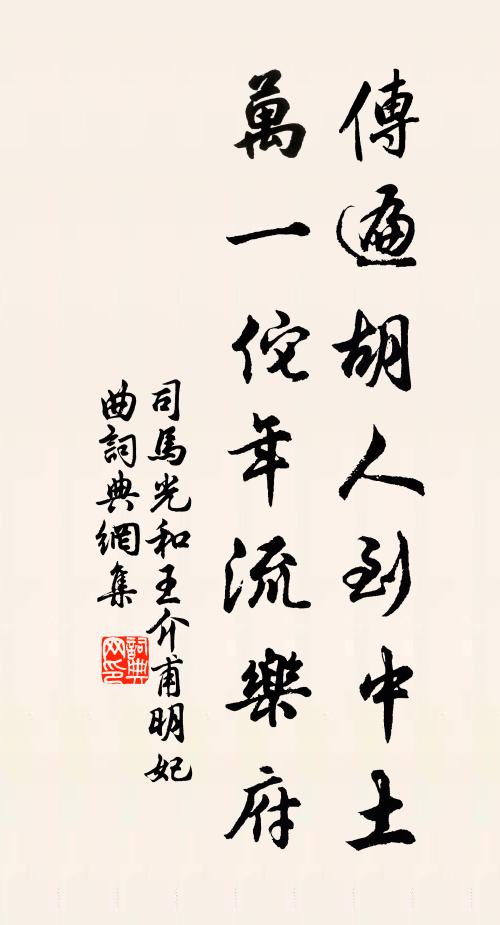 傳遍胡人到中土
萬一佗年流樂府
司馬光和王介甫明妃
曲詞典網集
詞典网印